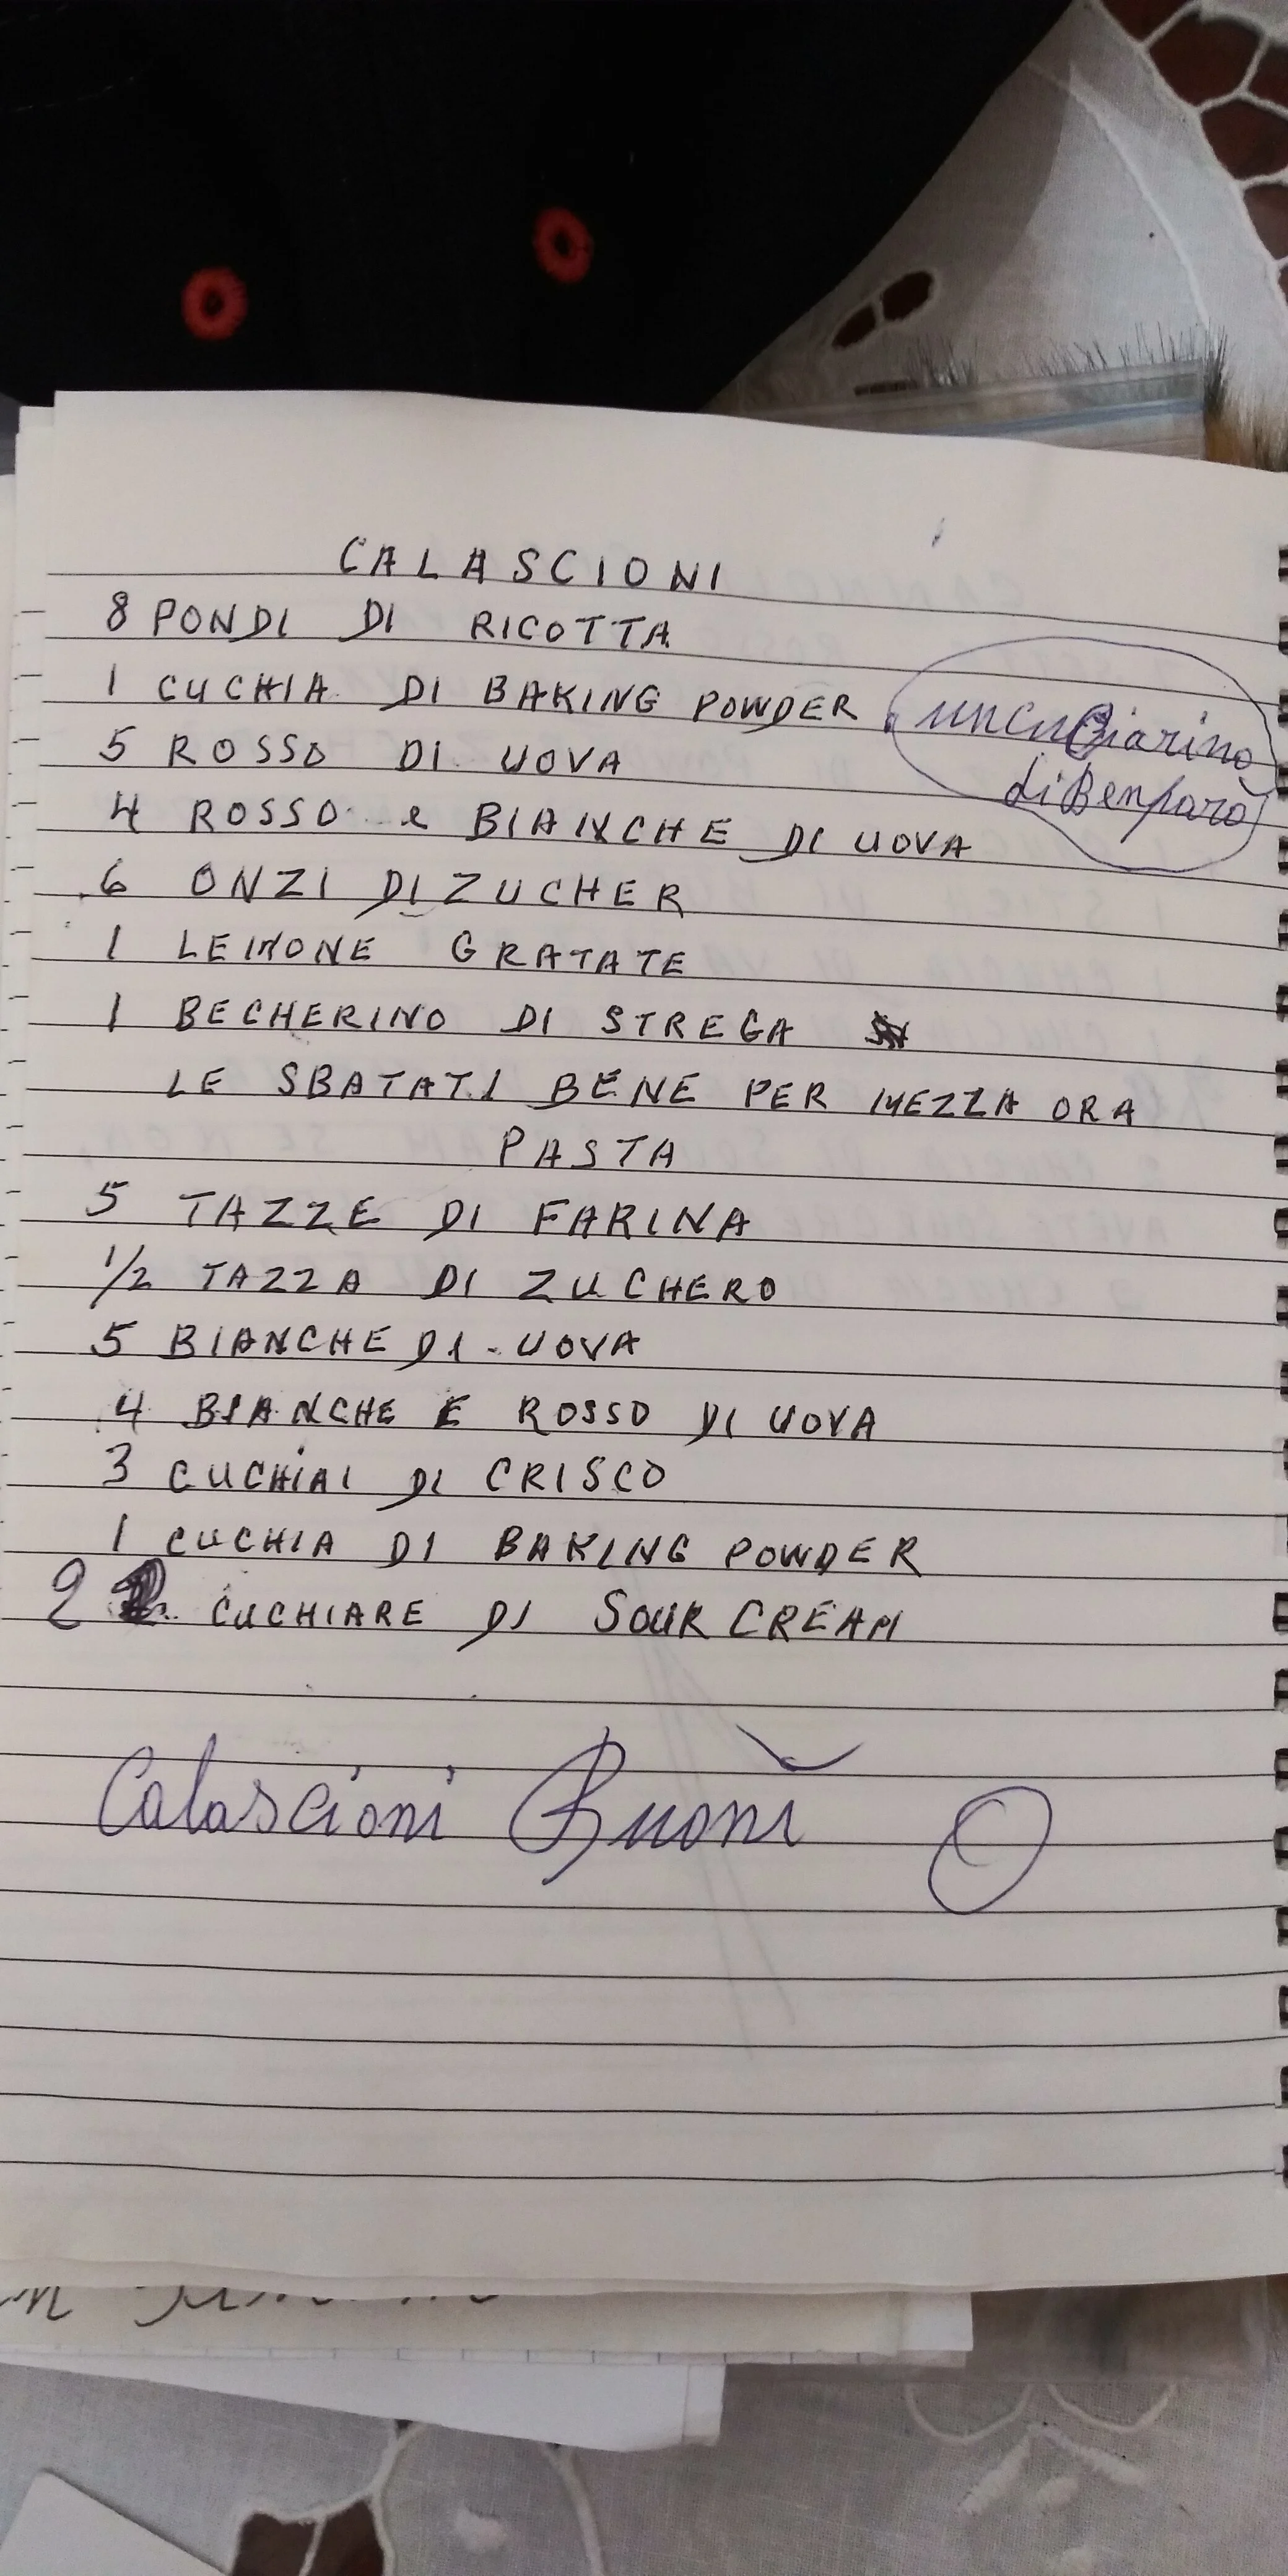 CALASCIONI
8 PONDI DI RICOTTA
1 CUCHIA DI BAKING POWDER
un cuCiarino
di Benparo
5 ROSSO DI UOVA
4 ROSSO e BIANCHE DI UOVA
6 ONZI DI ZUCHER
1 LEMONE GRATATE
1 BECHERINO DI STREGA
LE SBATATI BENE PER MEZZA ORA
PASTA
5 TAZZE DI FARINA
1/2 TAZZA DI ZUCHERO
5 BIANCHE DI UOVA
4 BIANCHE E ROSSO DI UOVA
3 CUCHIAI DI CRISCO
1 CUCHIA DI BAKING POWDER
2 CUCHIARE DI SOUR CREAM
Calascioni Buoni